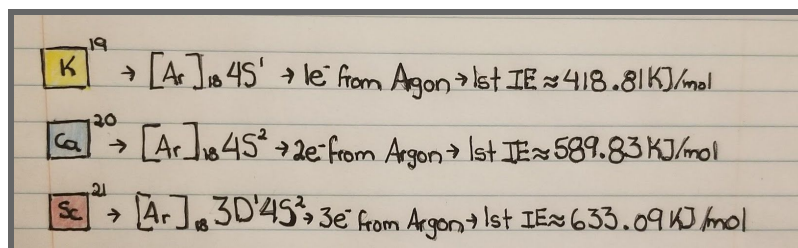 K 19 → [Ar]₁₈ 4S¹ → 1e⁻ from Argon → 1st IE ≈ 418.81KJ/mol
Ca 20 → [Ar]₁₈ 4S² → 2e⁻ from Argon → 1st IE ≈ 589.83 KJ/mol
Sc 21 → [Ar]₁₈ 3D¹4S² → 3e⁻ from Argon → 1st IE ≈ 633.09 KJ/mol